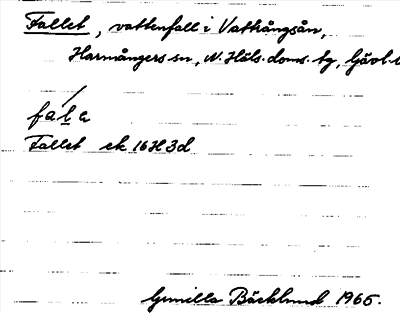 Fallet, vattenfall i Vattrångsån,
Harmångers sn, N. Häls. doms. tg, Gävl. l
fala
Fallet ek 16H 3d
Gunilla Bäcklund 1965.